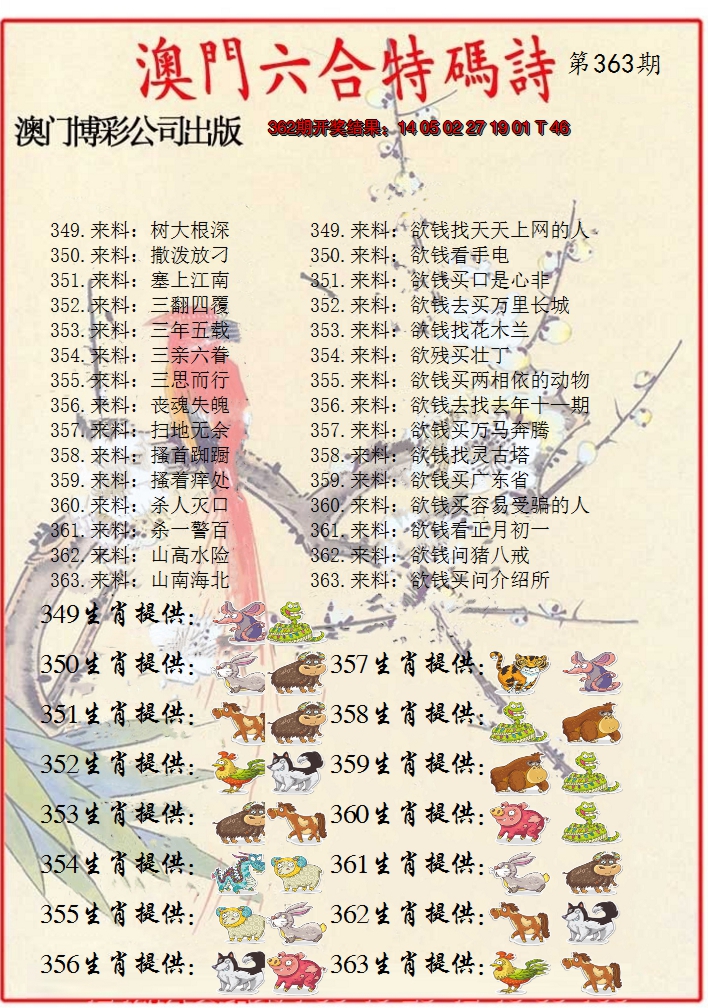 澳門六合特碼詩 第363期
澳门博彩公司出版 362期开奖结果：14 05 02 27 19 01 T 46
349.来料：树大根深 349.来料：欲钱找天天上网的人
350.来料：撒泼放刁 350.来料：欲钱看手电
351.来料：塞上江南 351.来料：欲钱买口是心非
352.来料：三翻四覆 352.来料：欲钱去买万里长城
353.来料：三年五载 353.来料：欲钱找花木兰
354.来料：三亲六眷 354.来料：欲残买壮丁
355.来料：三思而行 355.来料：欲钱买两相依的动物
356.来料：丧魂失魄 356.来料：欲钱去找去年十一期
357.来料：扫地无余 357.来料：欲钱买万马奔腾
358.来料：搔首踟蹰 358.来料：欲钱找灵古塔
359.来料：搔着痒处 359.来料：欲钱买广东省
360.来料：杀人灭口 360.来料：欲钱买容易受骗的人
361.来料：杀一警百 361.来料：欲钱看正月初一
362.来料：山高水险 362.来料：欲钱问猪八戒
363.来料：山南海北 363.来料：欲钱买问介绍所
349生肖提供：
350生肖提供： 357生肖提供：
351生肖提供： 358生肖提供：
352生肖提供： 359生肖提供：
353生肖提供： 360生肖提供：
354生肖提供： 361生肖提供：
355生肖提供： 362生肖提供：
356生肖提供： 363生肖提供：